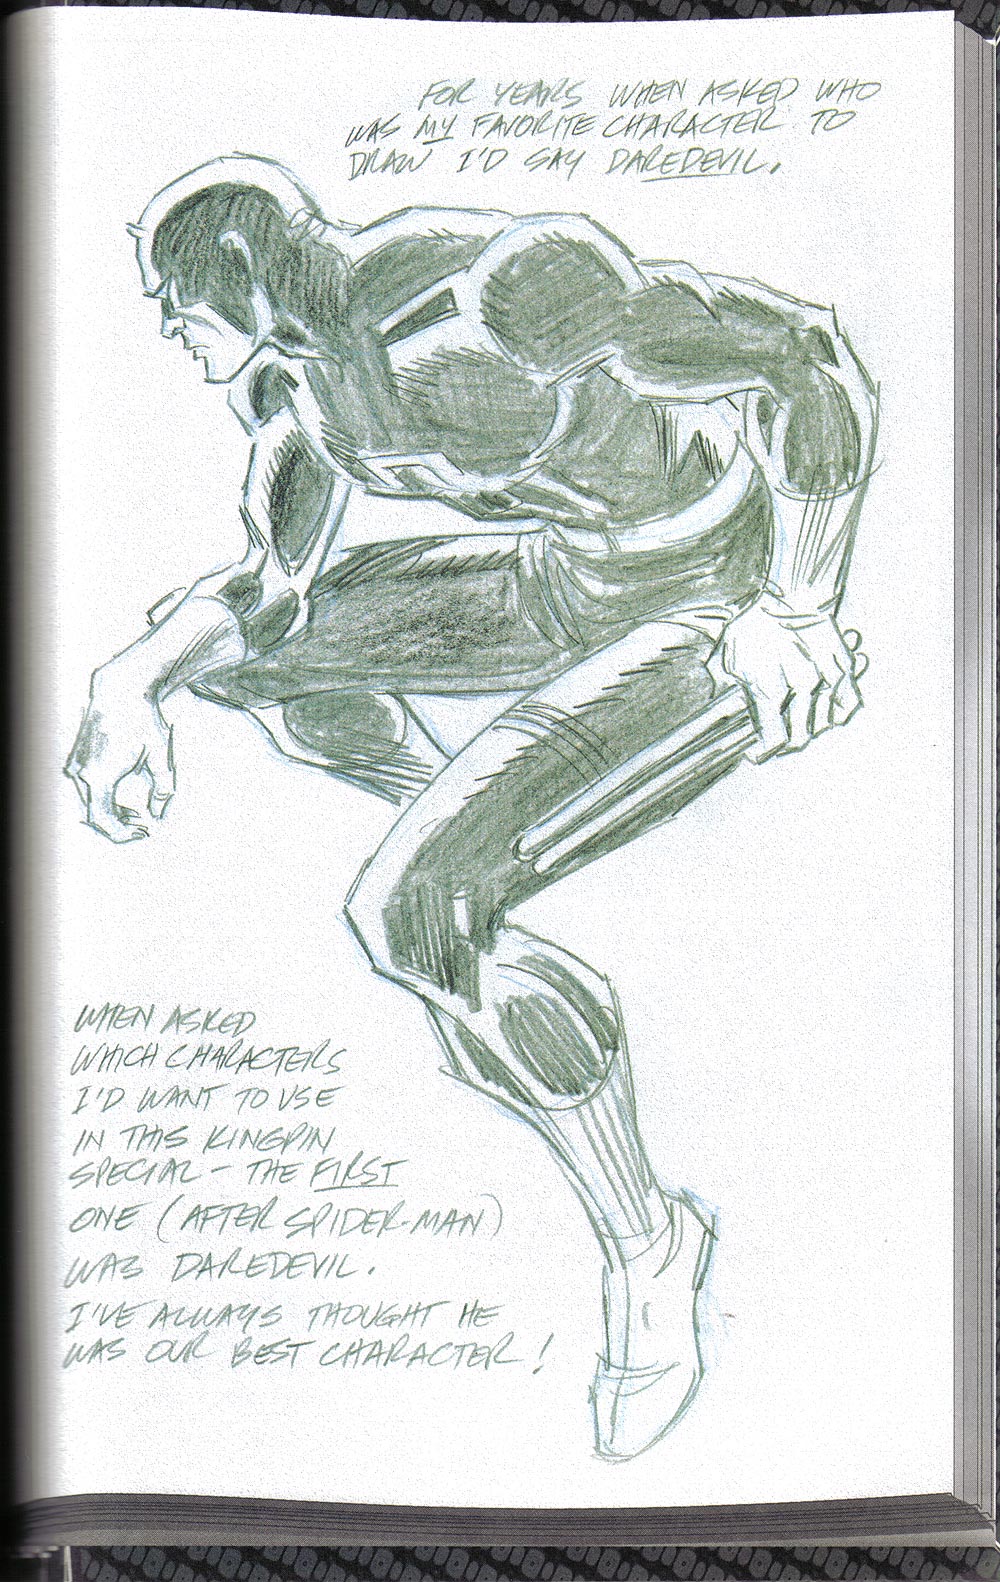 FOR YEARS WHEN ASKED WHO
WAS MY FAVORITE CHARACTER TO
DRAW I'D SAY DAREDEVIL.
WHEN ASKED
WHICH CHARACTERS
I'D WANT TO USE
IN THIS KINGPIN
SPECIAL - THE FIRST
ONE (AFTER SPIDER-MAN)
WAS DAREDEVIL.
I'VE ALWAYS THOUGHT HE
WAS OUR BEST CHARACTER!